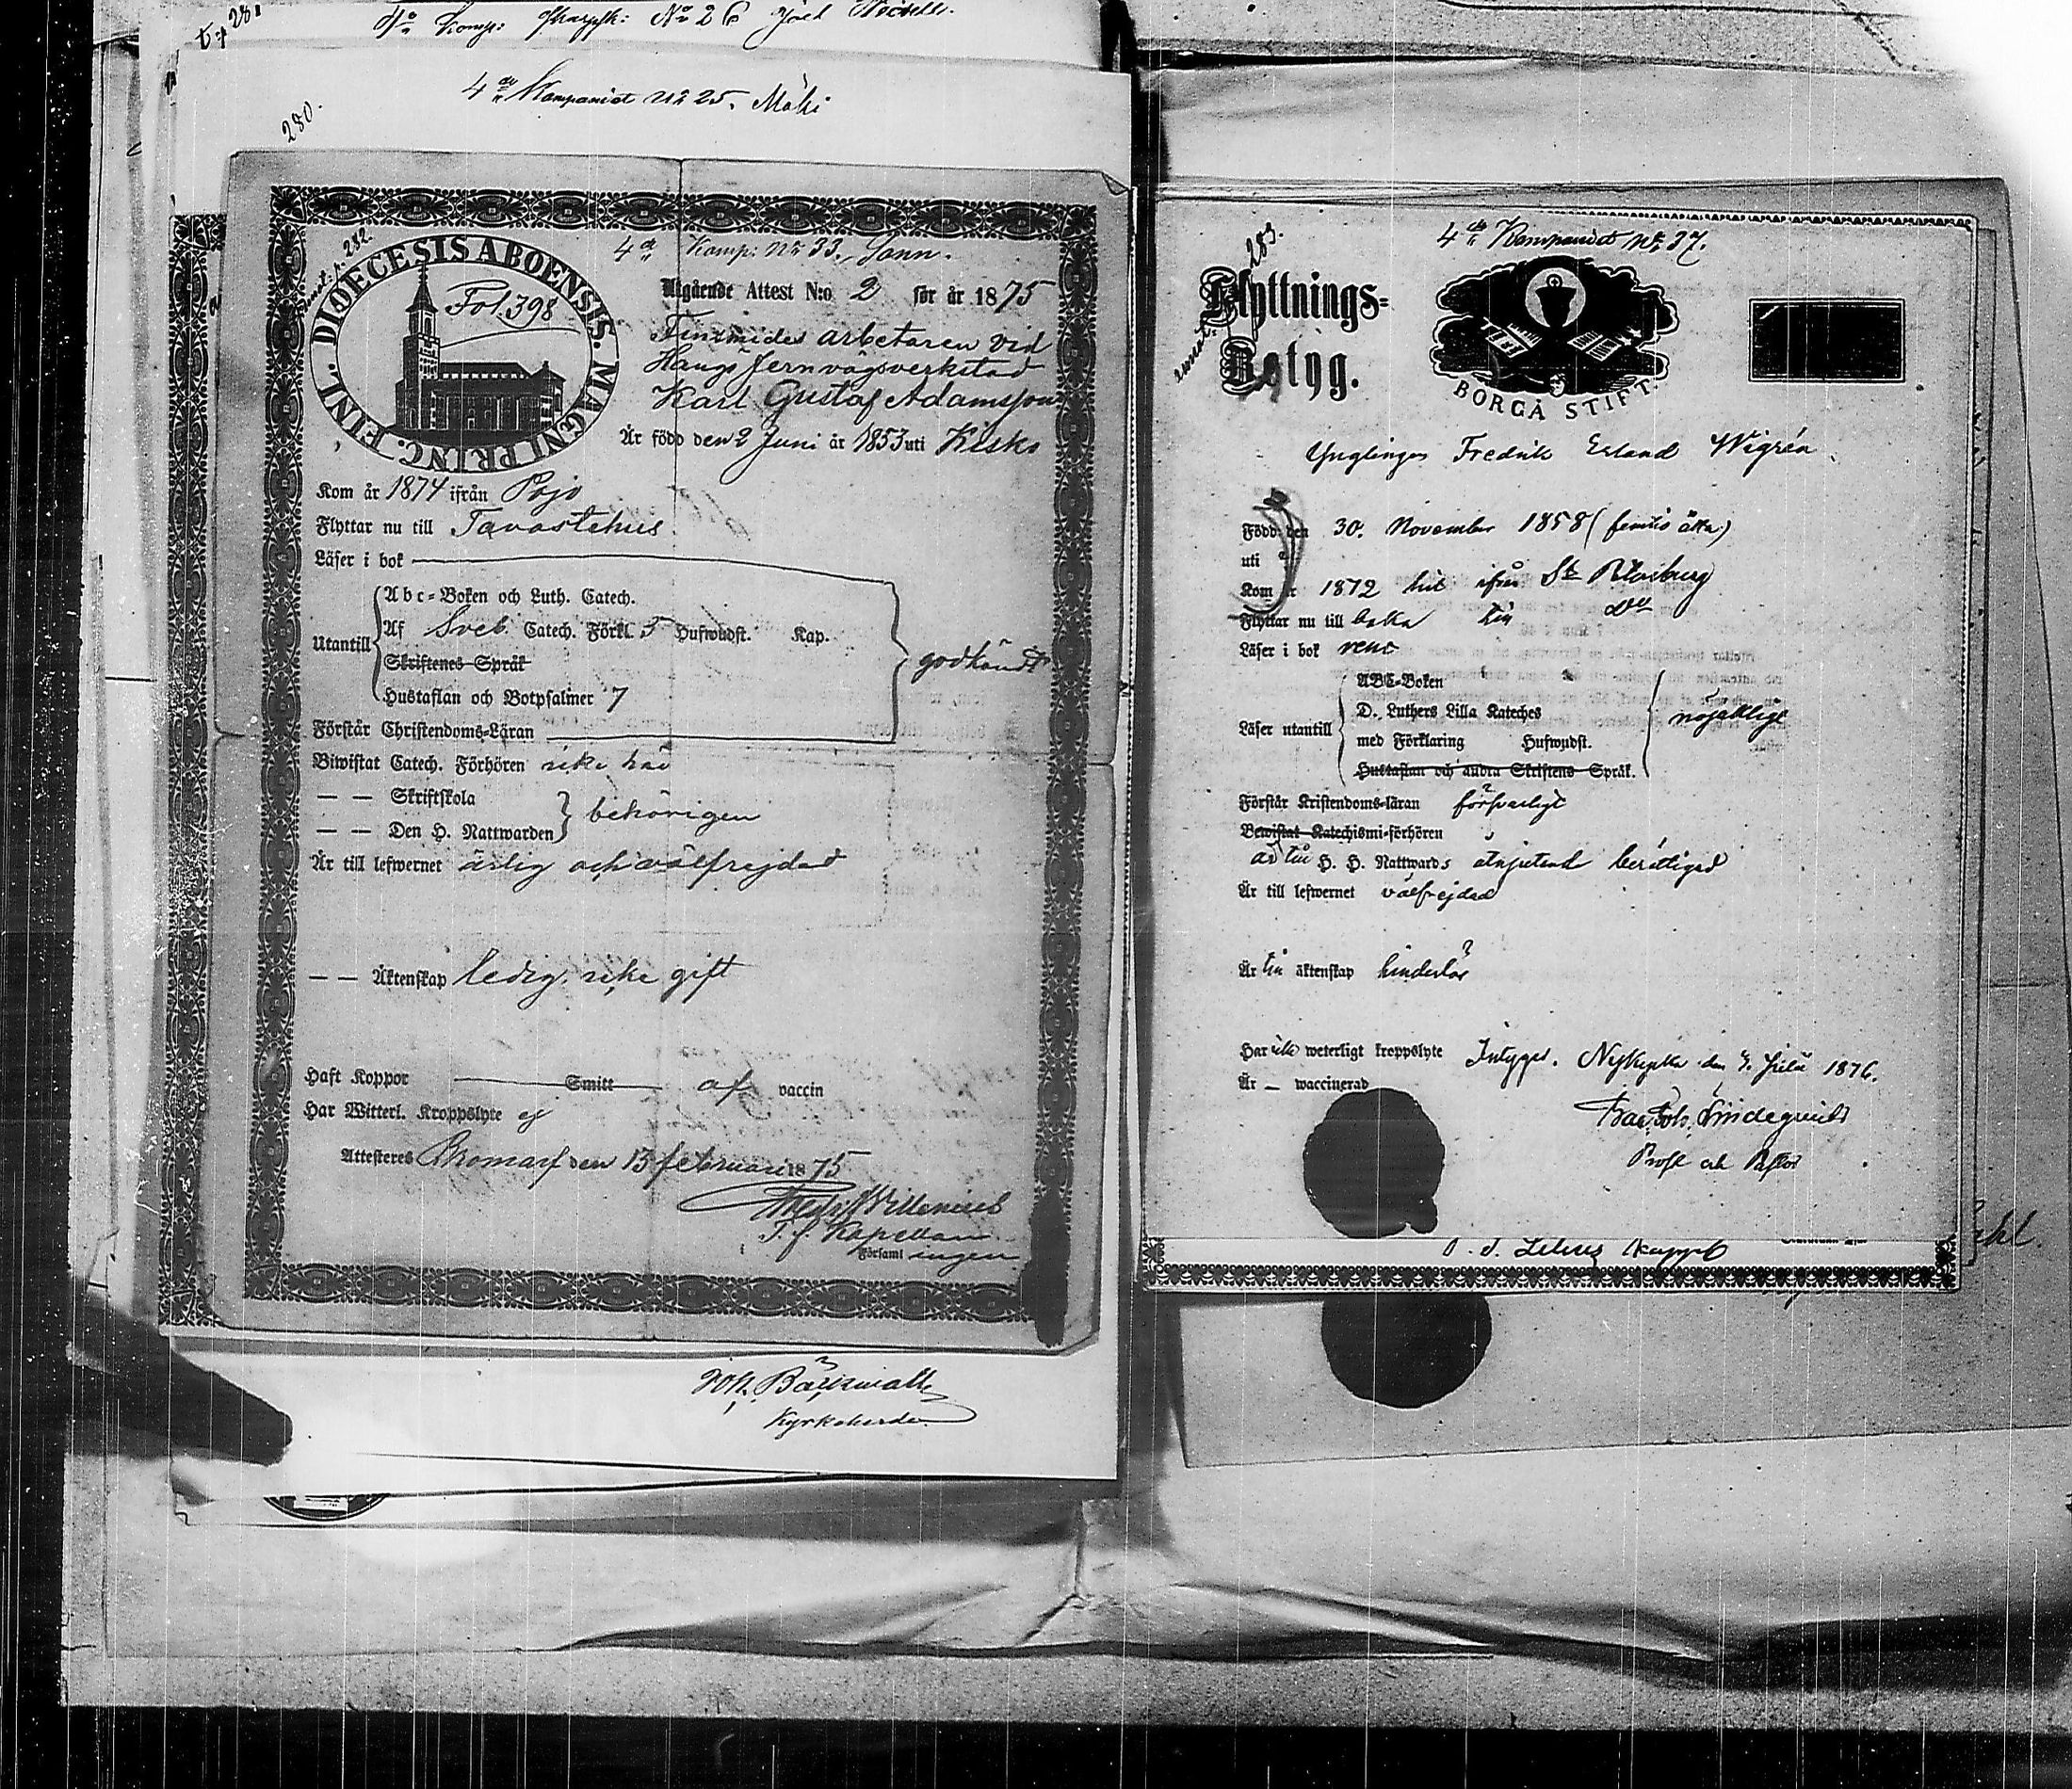 281
Komp: Skarpsk: No 26
280.
4de Kompaniet No 25. Mäki
p. 282.
4de Komp: No 33. Sonn.
DIOECESIS ABOENSIS. MAGNI PRINC. FINL.
Fol. 398
Utgående Attest N:o 2 för år 1875
arbetaren vid
Jernvägsverkstad
Karl Gustaf Adamsson
Är född den 2 Juni år 1853 uti Kisko
Kom år 1874 ifrån Pojo
Flyttar nu till Tavastehus
Läser i bok
Utantill
Abc-Boken och Luth. Catech.
Af Sveb. Catech. Förkl. 5 Hufwudst. Kap.
Skriftenes Språk
Hustaflan och Botpsalmer 7
godkändt
Förstår Christendoms-Läran
Biwistat Catech. Förhören icke här
— — Skriftskola
— — Den H. Nattwarden
behörigen
Är till lefwernet ärlig och välfrejdad
— — Äktenskap ledig, icke gift
Haft Koppor Smitt af vaccin
Har Witterl. Kroppslyte ej
Attesteras Bromarf den 13 februari 1875
Fredr. Willenius
T. f. Kapellan
Församl ingen
Joh. Bäckwall
Kyrkoherde
283.
4de Kompaniet No 37.
Flyttnings-
Betyg.
BORGÅ STIFT
Ynglingen Fredrik Erland Wigrén
Född den 30. November 1858 (femtio åtta)
uti
Kom år 1872 hit ifrån St. Petersburg
Flyttar nu till baka till do
Läser i bok rent
Läser utantill
ABC-Boken
D. Luthers Lilla Kateches
med Förklaring Hufwudst.
Hustaflan och andra Skriftens Språk.
nöjaktligt
Förstår Kristendoms-läran försvarligt
Bewistat Katechismi-förhören
är till H. H. Nattwards åtnjutande berättigad
Är till lefwernet välfrejdad
Är till äktenskap hinderlös
Har icke weterligt kroppslyte
Intygas. Nykyrka den 7. Juli 1876.
Är — waccinerad
Lindequist
Prost och Pastor